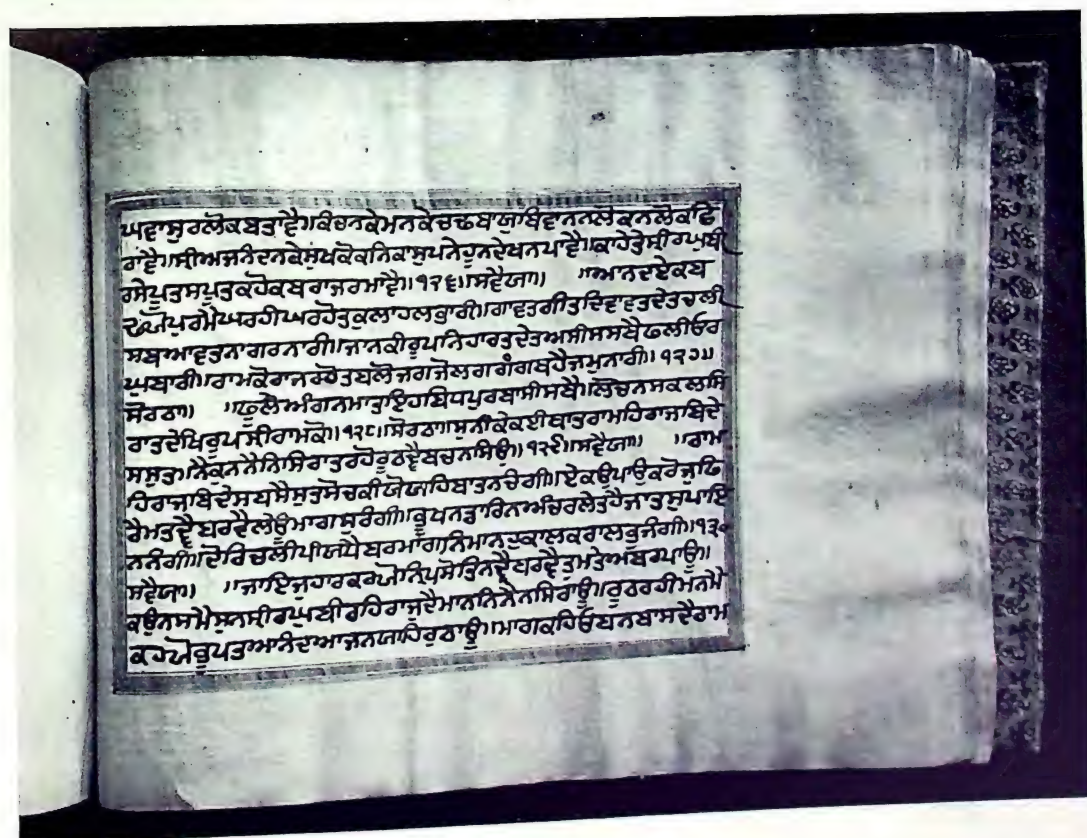 ਘਵਾਸੁਰਲੋਕਬਤਾਵੈ॥ਕੰਚਨਕੇਮਨਕੇਚਢਬਾਯਾਬਿਵਾਨਨਲੋਕਨਲੋਕਫਿ
ਰਾਵੈ॥ਸ੍ਰੀਅਜਨੰਦਨਕੇਸੁਖਕੋਕਨਿਕਾਸੁਪਨੇਹੂਨਦੇਖਨਪਾਵੈ॥ਕਾਹੇਤੇਸ੍ਰੀਰਘੁਬੀ
ਰਸੇਪੂਤਸਪੂਤਕਹੋਕਬਰਾਜਰਮਾਵੈ॥੧੨੬॥ਸਵੈਯਾ॥ ॥ਆਨਦਏਕਬ
ਢਯੋਪੁਰਮੈਘਰਹੀਘਰਹੋਤੁਕੁਲਾਹਲਭਾਰੀ॥ਗਾਵਤਗੀਤੁਦਿਵਾਵਤਦੇਤਚਲੀ
ਸਬਆਵਤਨਾਗਰਨਾਰੀ॥ਜਾਨਕੀਰੂਪਨਿਹਾਰਤੁਦੇਤਅਸੀਸਸਬੈਢਲੀਓਰ
ਘੁਬਾਰੀ॥ਰਾਮਕੋਰਾਜਰਹੋਤਬਲੋਜਗਜੋਲਗਗੰਗਬਹੈਜਮੁਨਾਰੀ॥੧੨੭॥
ਸੋਰਠਾ॥ ॥ਫੂਲੇਅੰਗਨਮਾਤੁਇਹਬਿਧਪੁਰਬਾਸੀਸਬੈ॥ਲੋਚਨਸਕਲਸਿ
ਰਾਤਦੇਖਿਰੂਪਸ੍ਰੀਰਾਮਕੋ॥੧੨੮॥ਸੋਰਠਾ॥ਸੁਨੀਕੇਕਈਬਾਤਰਾਮਹਿਰਾਜਾਬਿਦੇ
ਸਸੁਤ॥ਨੈਕੁਨਨੈਨਿਸਿਰਾਤਰਹੋਰੂਠਦ੍ਵੈਬਚਨਸਿਉ॥੧੨੯॥ਸਵੈਯਾ॥ ॥ਰਾਮ
ਹਿਰਾਜਾਬਿਦੇਸਬਸੈਸੁਤਸੋਚਕੀਯੋਯਹਿਬਾਤਨਚੰਗੀ॥ਏਕਉਪਾਉਕਰੋਜੁਫਿ
ਰੈਮਤਦ੍ਵੈਬਰਵੈਲੇਊਮਾਗਸੁਰੰਗੀ॥ਭੂਖਨਡਾਰਿਨਅੰਚਰਲੇਤਹੈਜਾਤੁਸੁਪਾਇ
ਨਨੰਗੀ॥ਦੋਰਿਚਲੀਪੀਯਪੈਬਰਮਾਂਗਨਿਮਾਨਹੁਕਾਲਕਰਾਲਭੁਜੰਗੀ॥੧੩੦
ਸਵੈਯਾ॥ ॥ਜਾਇਜੁਹਾਰਕਰਯੋਨ੍ਰਿਪਸੋਤਿਨਦ੍ਵੈਬਰਦੈਤੁਮਤੇਅਬਪਾਊ॥
ਕਉਨਸਮੈਸੁਨਸ੍ਰੀਰਘੁਬੀਰਹਿਰਾਜੁਦੈਮਾਨਨਿਨੈਨਸਿਰਾਊ॥ਰੂਠਰਹੀਮਨਮੈ
ਕਹਯੋਭੂਪਤਆਨੰਦਆਜਨਯਾਹਿਰੁਠਾਊ॥ਮਾਗਕਹਿਓਬਨਬਾਸਦੈਰਾਮ